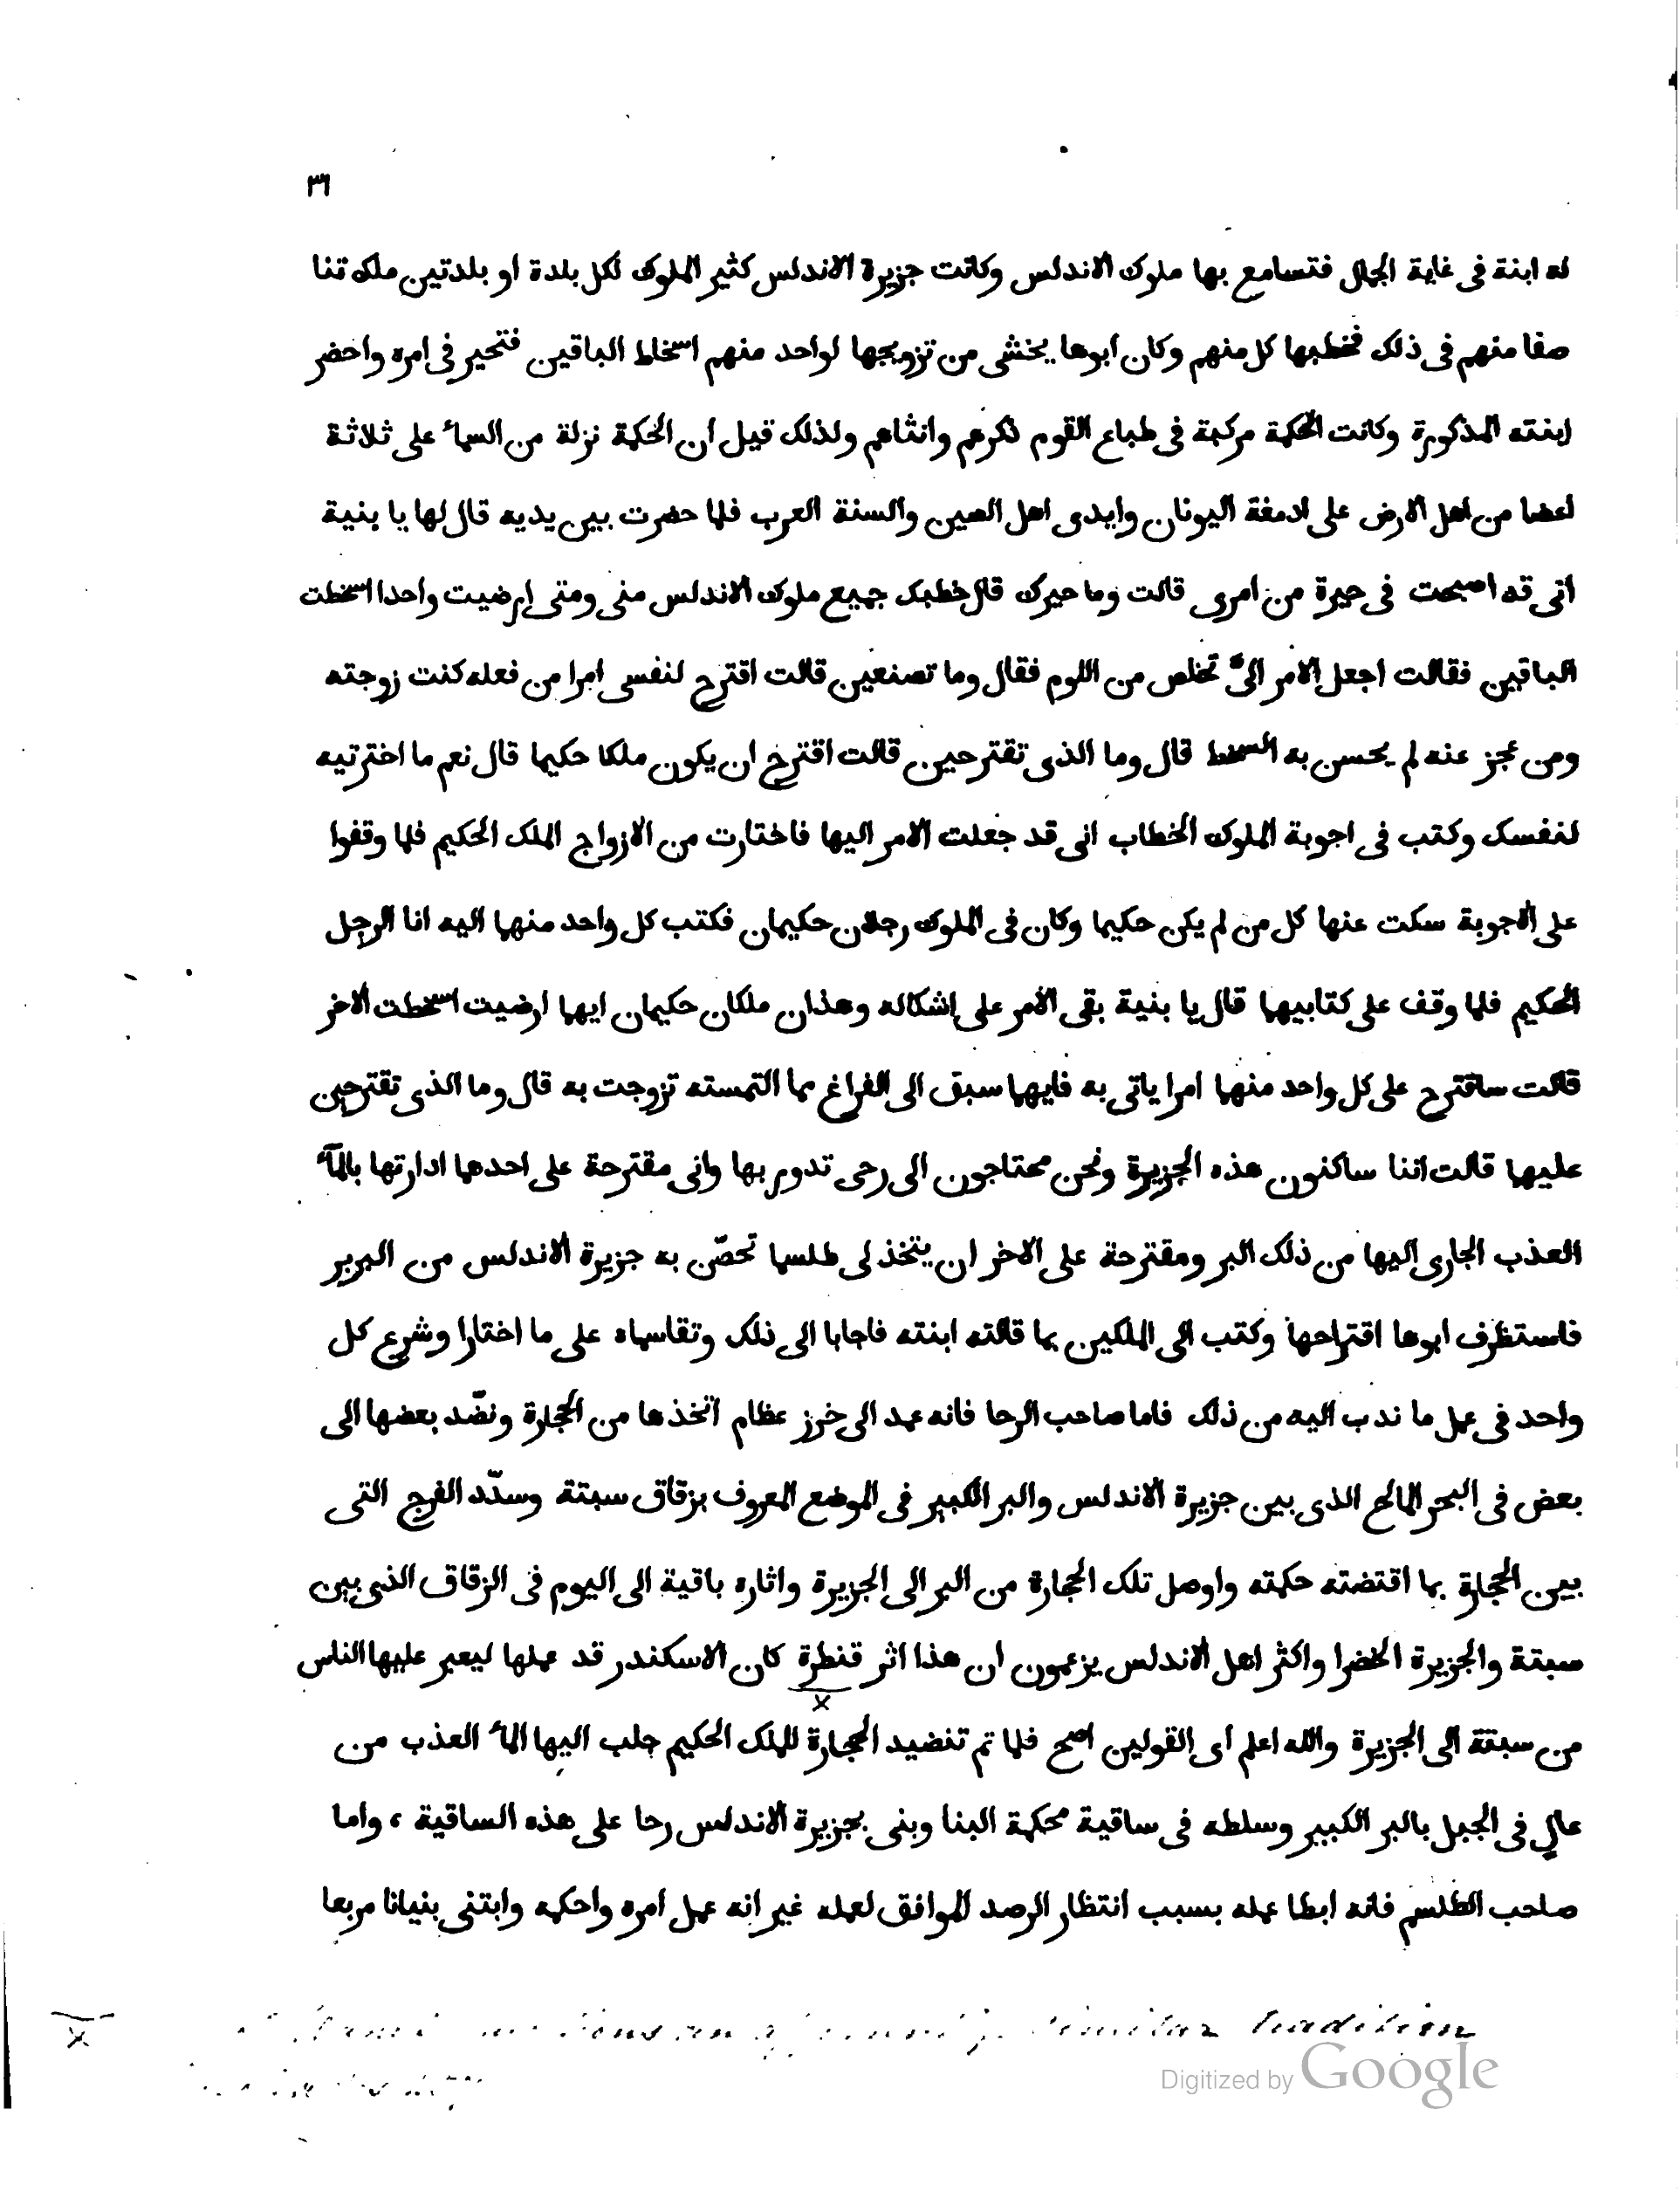 ٣٦
له ابنة فى غاية الجمال فتسامع بها ملوك الاندلس وكانت جزيرة الاندلس كثير الملوك لكل بلدة او بلدتين ملك تنا
صفا منهم فى ذلك فخطبها كل منهم وكان ابوها يخشى من تزويجها لواحد منهم اسخاط الباقين فتحير فى امره واحضر
ابنته المذكورة وكانت الحكمة مركبة فى طباع القوم ذكرهم وانثاهم ولذلك قيل ان الحكمة نزلة من السماء على ثلاثة
اعضا من اهل الارض على ادمغة اليونان وايدى اهل الصين والسنة العرب فلما حضرت بين يديه قال لها يا بنية
انى قد اصبحت فى حيرة من امرى قالت وما حيرك قال خطبك جميع ملوك الاندلس منى ومتى ارضيت واحدا اسخطت
الباقين فقالت اجعل الامر الىّ تخلص من اللوم فقال وما تصنعين قالت اقترح لنفسى امرا من فعله كنت زوجته
ومن عجز عنه لم يحسن به السخط قال وما الذى تقترحين قالت اقترح ان يكون ملكا حكيما قال نعم ما اخترتيه
لنفسك وكتب فى اجوبة الملوك الخطاب انى قد جعلت الامر اليها فاختارت من الازواج الملك الحكيم فلما وقفوا
على الاجوبة سكت عنها كل من لم يكن حكيما وكان فى الملوك رجلان حكيمان فكتب كل واحد منهما اليه انا الرجل
الحكيم فلما وقف على كتابيهما قال يا بنية بقى الأمر على اشكاله وهذان ملكان حكيمان ايهما ارضيت اسخطت الاخر
قالت ساقترح على كل واحد منهما امرا ياتى به فايهما سبق الى الفراغ مما التمسته تزوجت به قال وما الذى تقترحين
عليهما قالت اننا ساكنون هذه الجزيرة ونحن محتاجون الى رحى تدور بها وانى مقترحة على احدهما ادارتها بالمآء
العذب الجارى اليها من ذلك البر ومقترحة على الاخر ان يتخذ لى طلسما تحصّن به جزيرة الاندلس من البربر
فاستظرف ابوها اقتراحها وكتب الى الملكين بما قالته ابنته فاجابا الى ذلك وتقاسماه على ما اختارا وشرع كل
واحد فى عمل ما ندب اليه من ذلك فاما صاحب الرحا فانه عمد الى خرز عظام اتخذها من الحجارة ونضّد بعضها الى
بعض فى البحر المالح الذى بين جزيرة الاندلس والبر الكبير فى الموضع المعروف بزقاق سبتة وسدّد الفرج التى
بين الحجارة بما اقتضته حكمته واوصل تلك الحجارة من البر الى الجزيرة واثاره باقية الى اليوم فى الزقاق الذى بين
سبتة والجزيرة الخضرا واكثر اهل الاندلس يزعمون ان هذا اثر قنطرة كان الاسكندر قد عملها ليعبر عليها الناس
x
من سبتة الى الجزيرة والله اعلم اى القولين اصح فلما تم تنضيد الحجارة للملك الحكيم جلب اليها الماء العذب من
عالٍ فى الجبل بالبر الكبير وسلطه فى ساقية محكمة البنا وبنى بجزيرة الاندلس رحا على هذه الساقية ، واما
صاحب الطلسم فانه ابطا عمله بسبب انتظار الرصد الموافق لعمله غير انه عمل امره واحكمه وابتنى بنيانا مربعا
x tradition
Digitized by Google